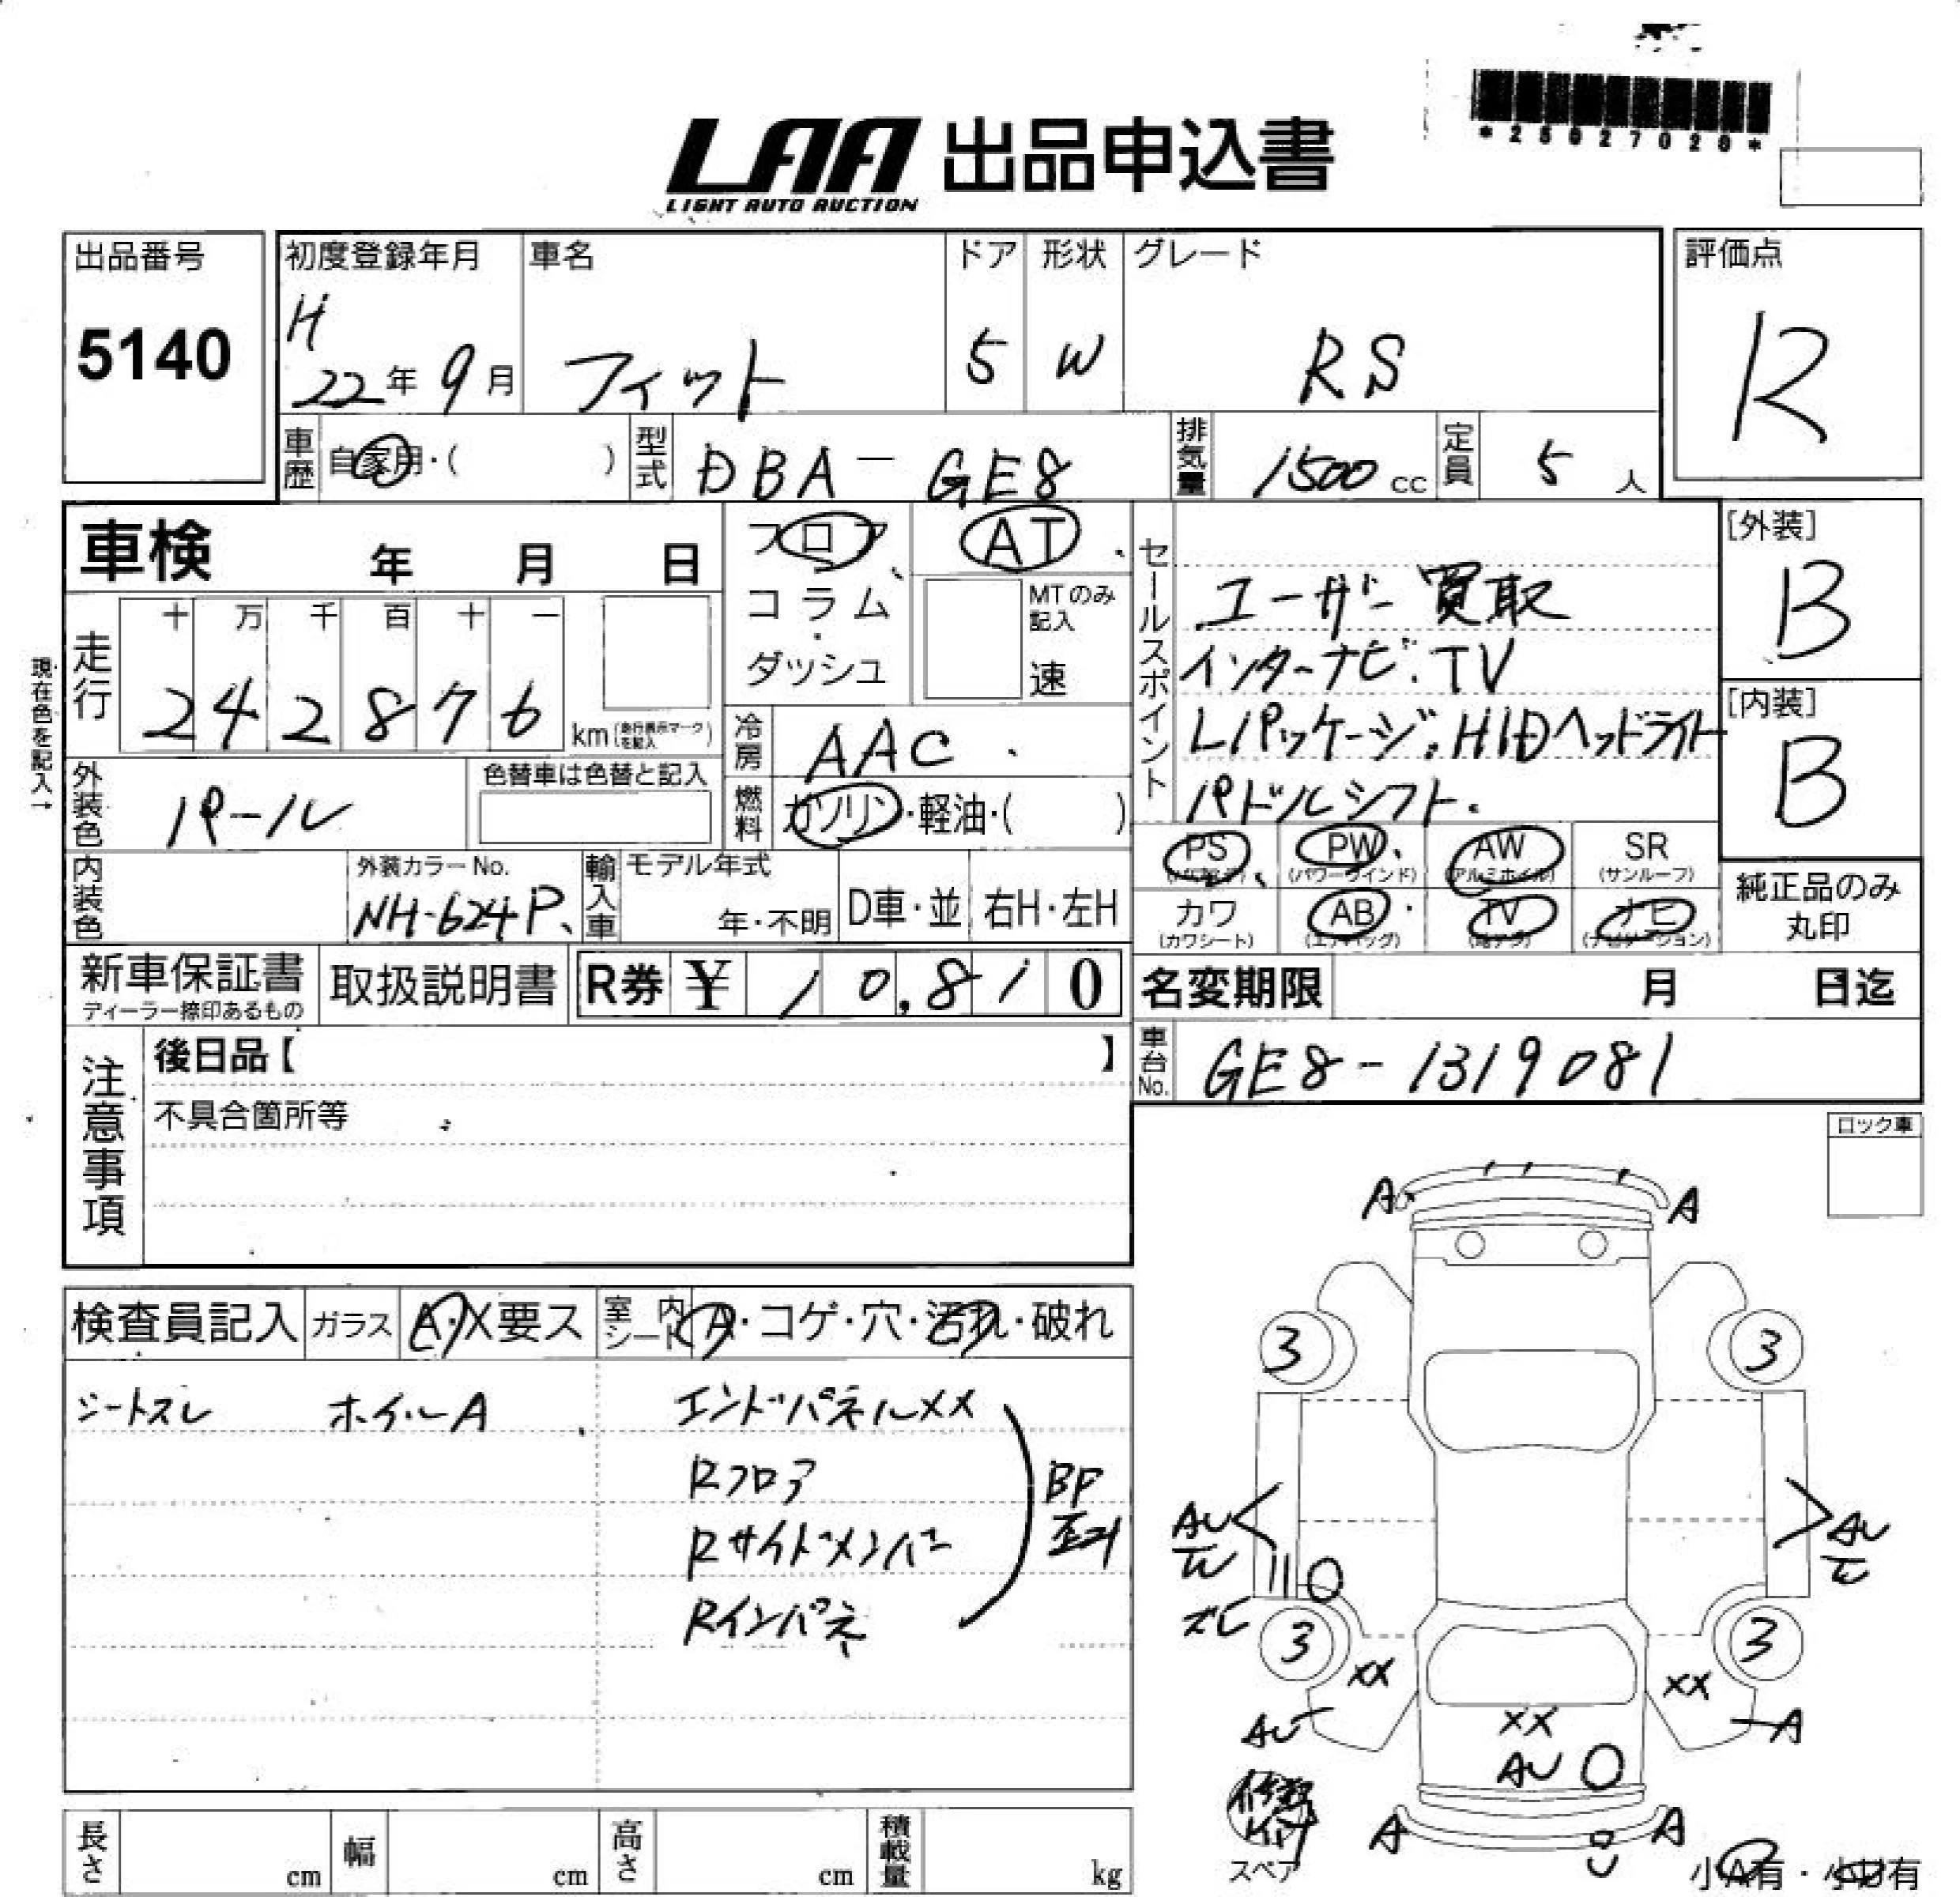 *25027020*
LAA 出品申込書
LIGHT AUTO AUCTION
出品番号
5140
初度登録年月
H
22年 9月
車名
フィット
ドア
5
形状
W
グレード
RS
評価点
R
車歴 自家用・( )
型式 DBA-GE8
排気量 1500 cc
定員 5 人
車検 年 月 日
フロア
コラム
・
ダッシュ
AT
MTのみ
記入
速
セールスポイント
ユーザー買取
インターナビ.TV
Lパッケージ.HIDヘッドライト
パドルシフト.
[外装]
B
[内装]
B
現在色を記入→
走行
十 万 千 百 十 一
2 4 2 8 7 6
km(走行表示マークを記入)
冷房 AAC
燃料 ガソリン・軽油・( )
外装色 パール
色替車は色替と記入
内装色
外装カラーNo.
NH-624P
輸入車
モデル年式
年・不明
D車・並
右H・左H
PS
PW
(パワーウインド)
AW
(アルミホイル)
SR
(サンルーフ)
カワ
(カワシート)
AB
(エアバッグ)
TV
ナビ
(ナビゲーション)
純正品のみ
丸印
新車保証書
ディーラー捺印あるもの
取扱説明書
R券 ¥ 10,810
名変期限 月 日迄
車台No. GE8-1319081
注意事項
後日品【 】
不具合箇所等
ロック車
検査員記入 ガラス A・X要ス 室内シート A・コゲ・穴・汚れ・破れ
シートスレ ホイールA エンドパネルXX
Rフロア
Rサイドメンバー
Rインパネ
BP
A A
3 3
AU AU
W W
3 3
XX XX
AU A
XX
AU
A A
スペア
小A有・小U有
長さ cm 幅 cm 高さ cm 積載量 kg